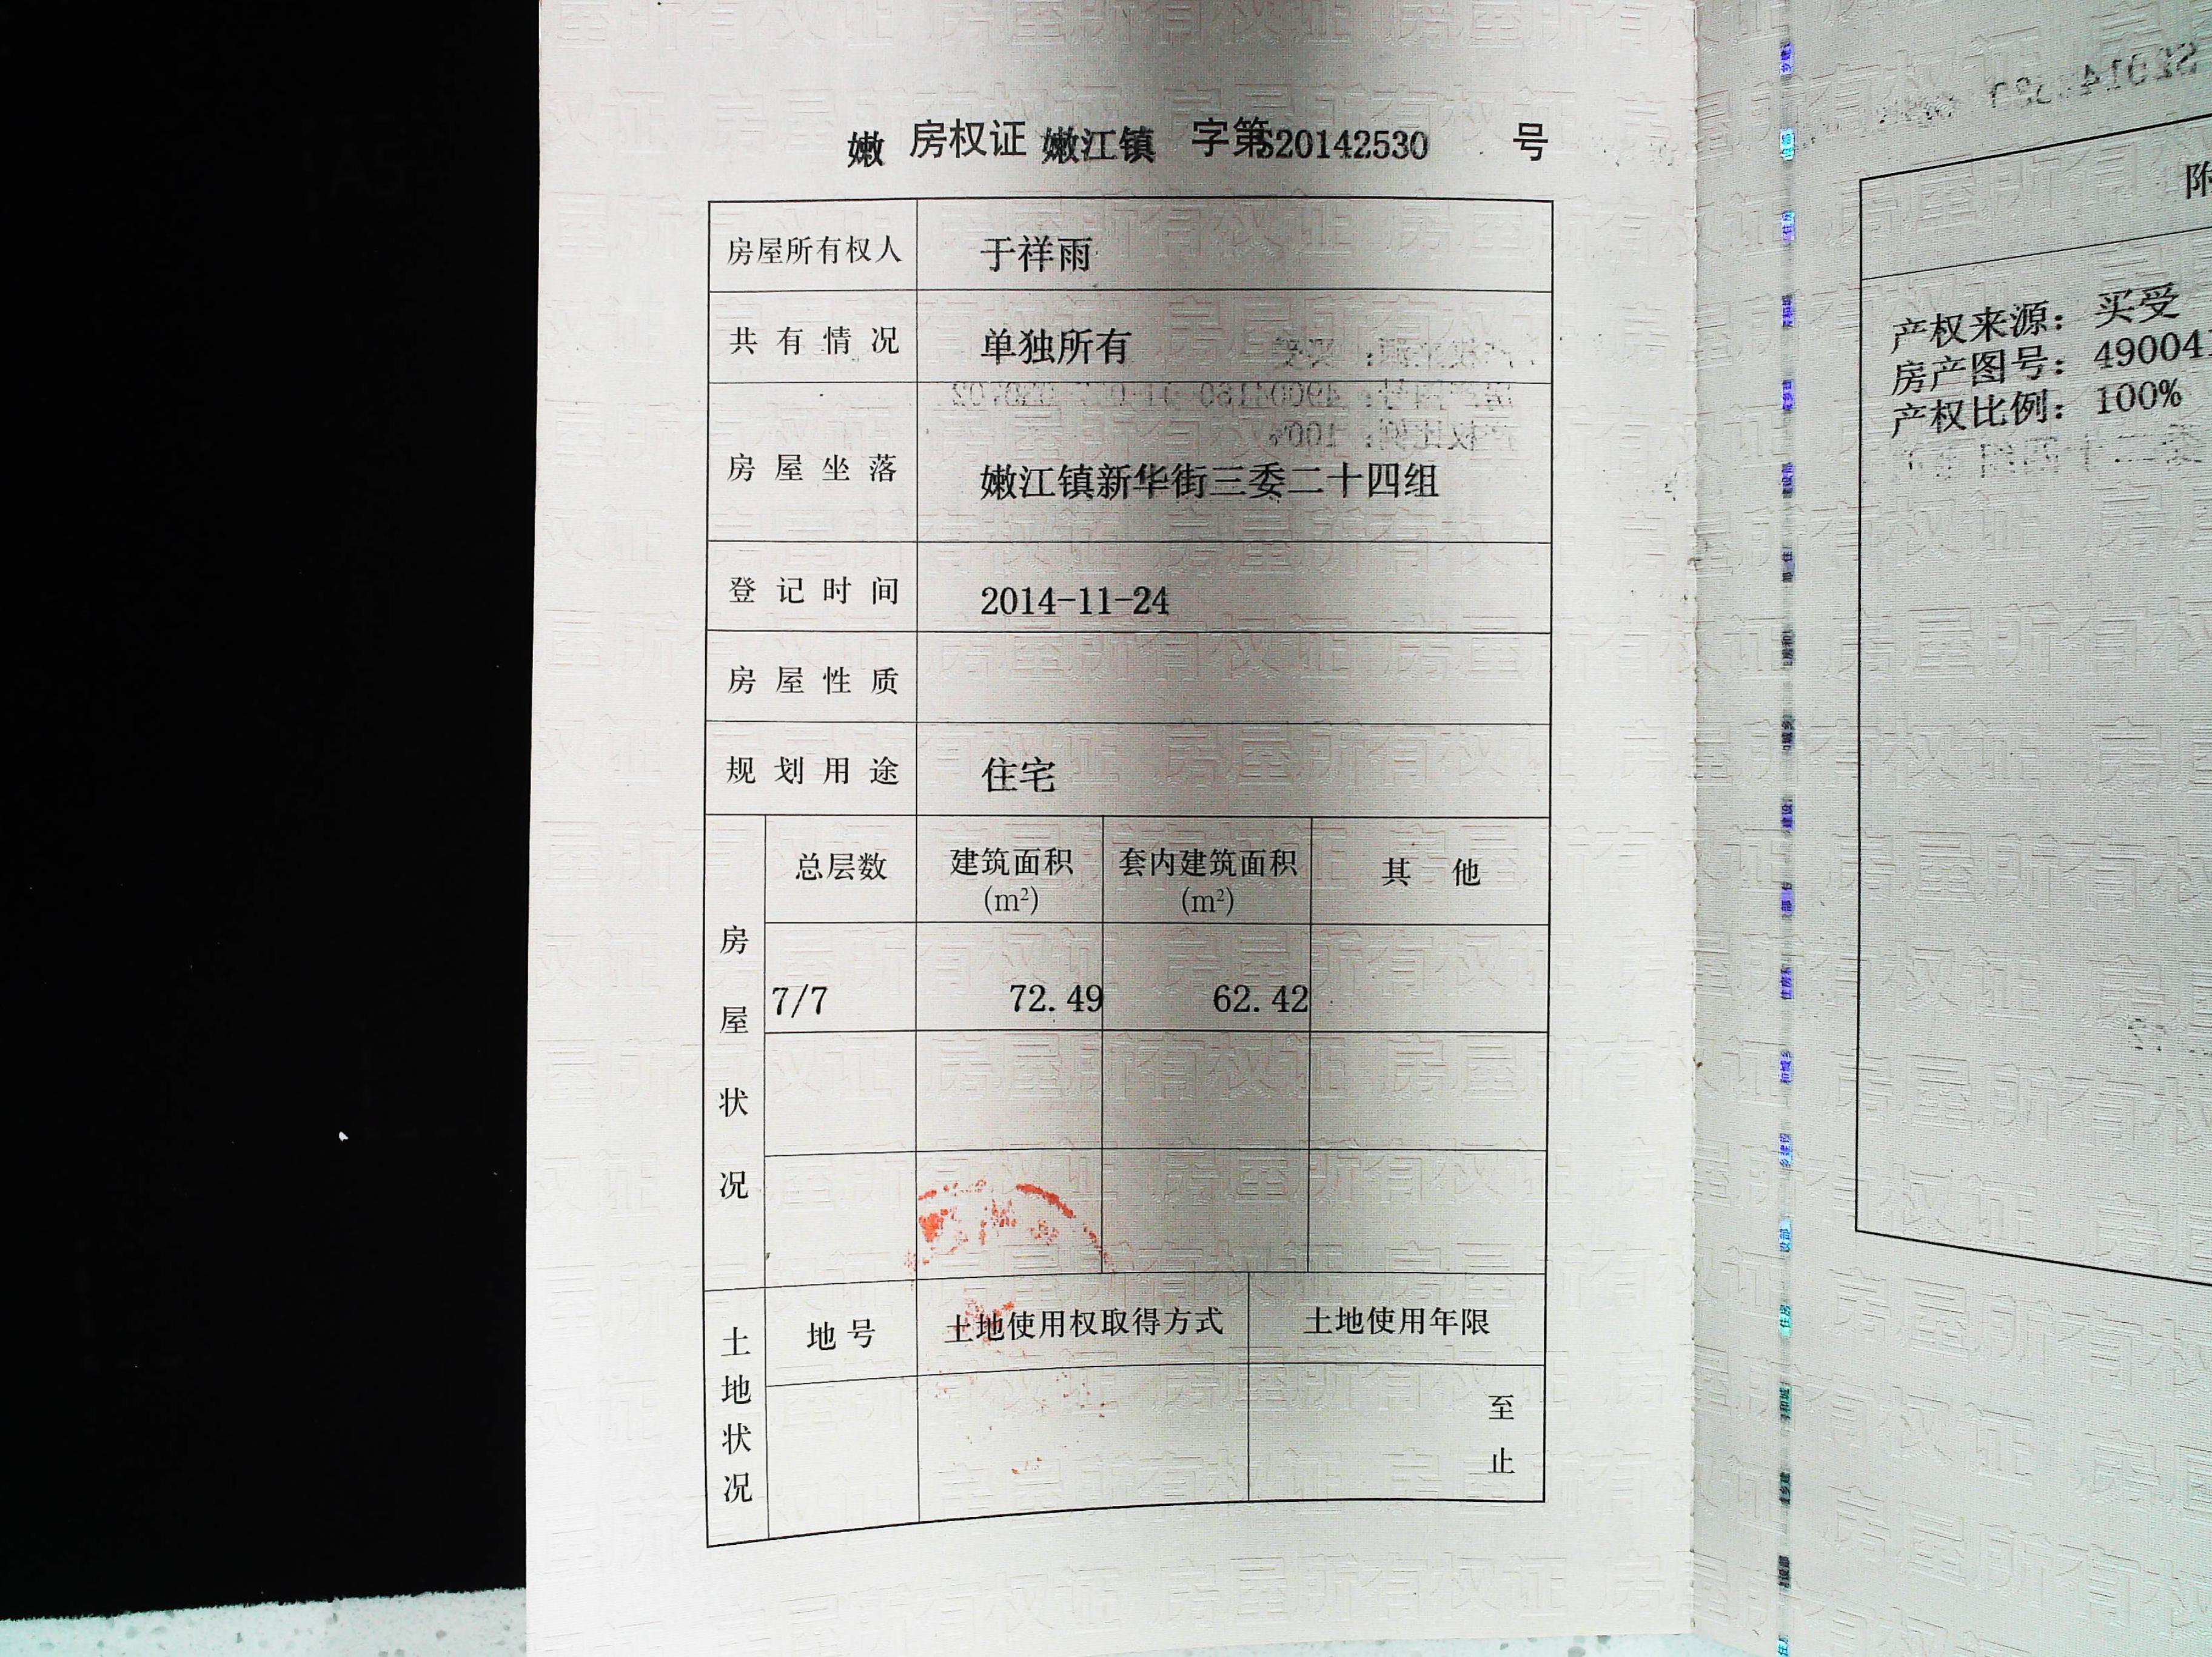 嫩 房权证 嫩江镇 字第S20142530 号
房屋所有权人 于祥雨
共有情况 单独所有
房屋坐落 嫩江镇新华街三委二十四组
登记时间 2014-11-24
房屋性质
规划用途 住宅
房屋状况
总层数 建筑面积(m²) 套内建筑面积(m²) 其他
7/7 72.49 62.42
土地状况
地号 土地使用权取得方式 土地使用年限
至
止
附
产权来源：买受
房产图号：49004
产权比例：100%